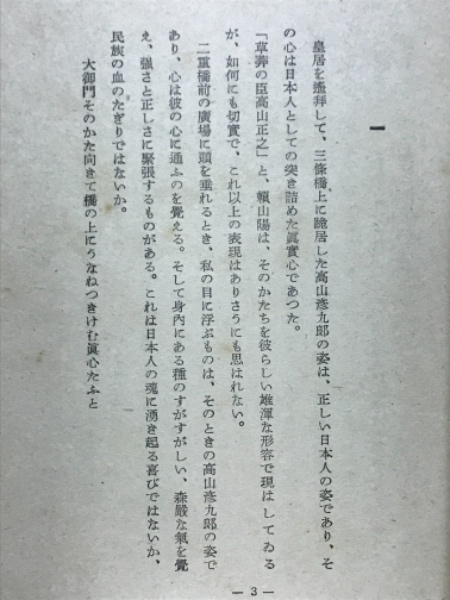 一
皇居を遙拜して、三條橋上に跪居した高山彦九郎の姿は、正しい日本人の姿であり、そ
の心は日本人としての突き詰めた眞實心であつた。
「草莽の臣高山正之」と、賴山陽は、そのかたちを彼らしい雄渾な形容で現はしてゐる
が、如何にも切實で、これ以上の表現はありさうにも思はれない。
二重橋前の廣場に頭を垂れるとき、私の目に浮ぶものは、そのときの高山彦九郎の姿で
あり、心は彼の心に通ふのを覺える。そして身內にある種のすがすがしい、森嚴な氣を覺
え、強さと正しさに緊張するものがある。これは日本人の魂に湧き起る喜びではないか、
民族の血のたぎりではないか。
大御門そのかた向きて橋の上にうなねつきけむ眞心たふと
— 3 —